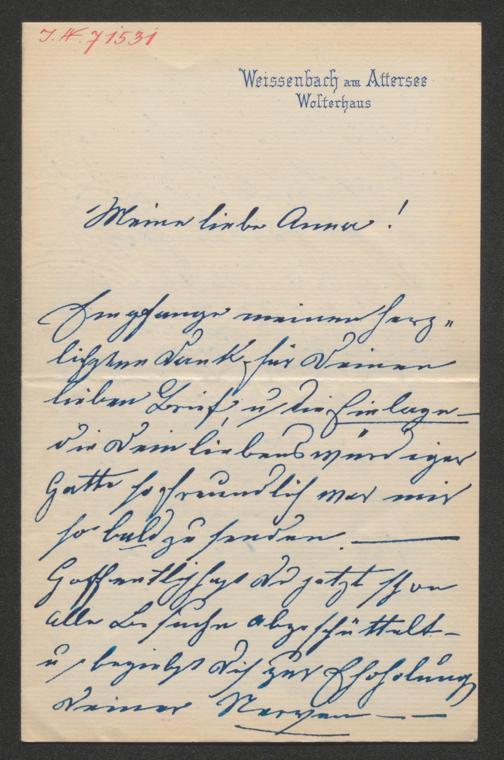 I.N. 71531
Weissenbach am Attersee
Wolterhaus
Meine liebe Anna!
Empfange meinen herz-
lichsten Dank für Deinen
lieben Brief u die Einlage –
die Dein liebenswürdiger
Gatte so freundlich war mir
so bald zu senden. —
Hoffentlich hast Du jetzt schon
alle Besuche abgeschüttelt –
u begiebst Dich zur Erholung
Deiner Nerven — —